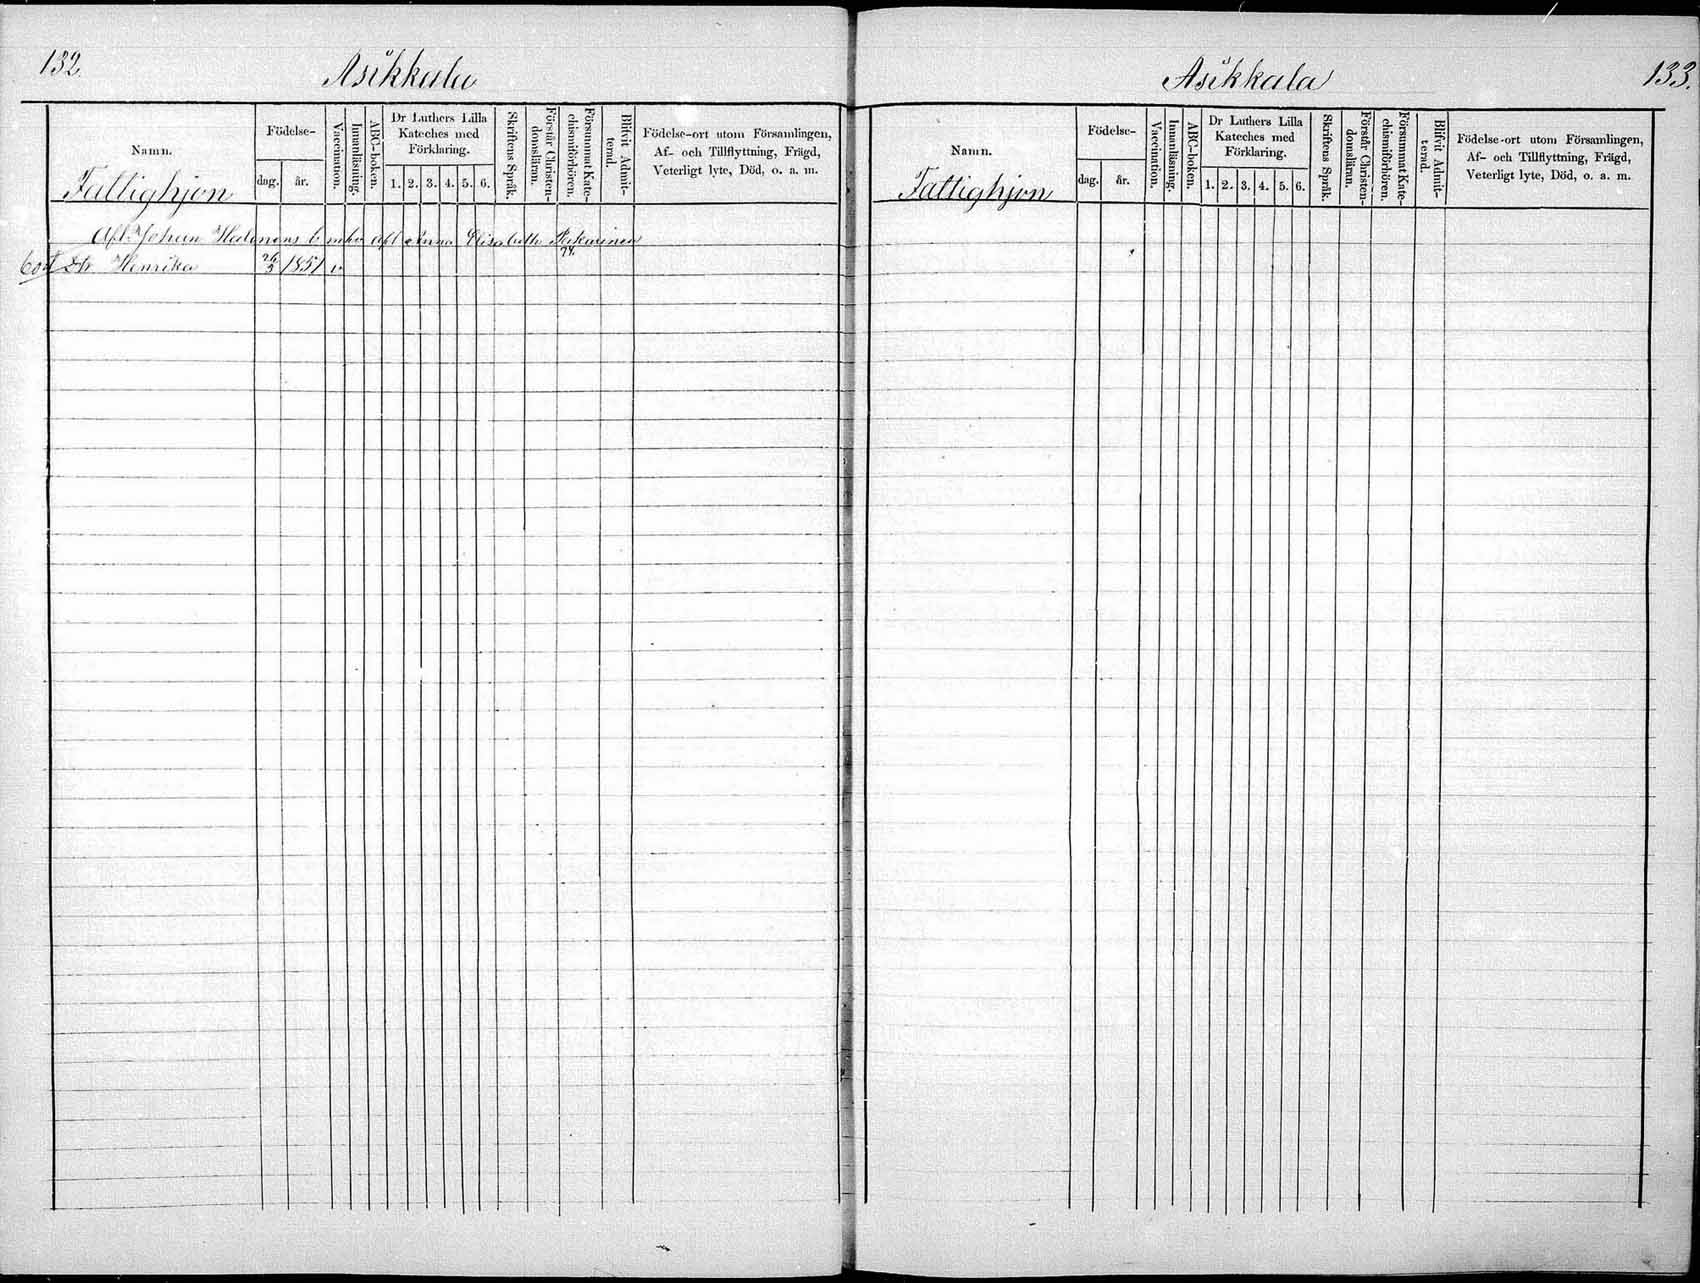 132.
Asikkala
Namn.
Fattighjon
Födelse-
dag.
år.
Vaccination.
Innanläsning.
ABC-boken.
Dr Luthers Lilla
Kateches med
Förklaring.
1. 2. 3. 4. 5. 6.
Skriftens Språk.
Förstår Christen-
domsläran.
Försummat Kate-
chismiförhören.
Blifvit Admit-
terad.
Födelse-ort utom Församlingen,
Af- och Tillflyttning, Frägd,
Veterligt lyte, Död, o. a. m.
Afl. Johan Halonens b afl Anna Elisabeth
Dr Henrika 26/3 1851 v 74.
133.
Asikkala
Namn.
Fattighjon
Födelse-
dag.
år.
Vaccination.
Innanläsning.
ABC-boken.
Dr Luthers Lilla
Kateches med
Förklaring.
1. 2. 3. 4. 5. 6.
Skriftens Språk.
Förstår Christen-
domsläran.
Försummat Kate-
chismiförhören.
Blifvit Admit-
terad.
Födelse-ort utom Församlingen,
Af- och Tillflyttning, Frägd,
Veterligt lyte, Död, o. a. m.